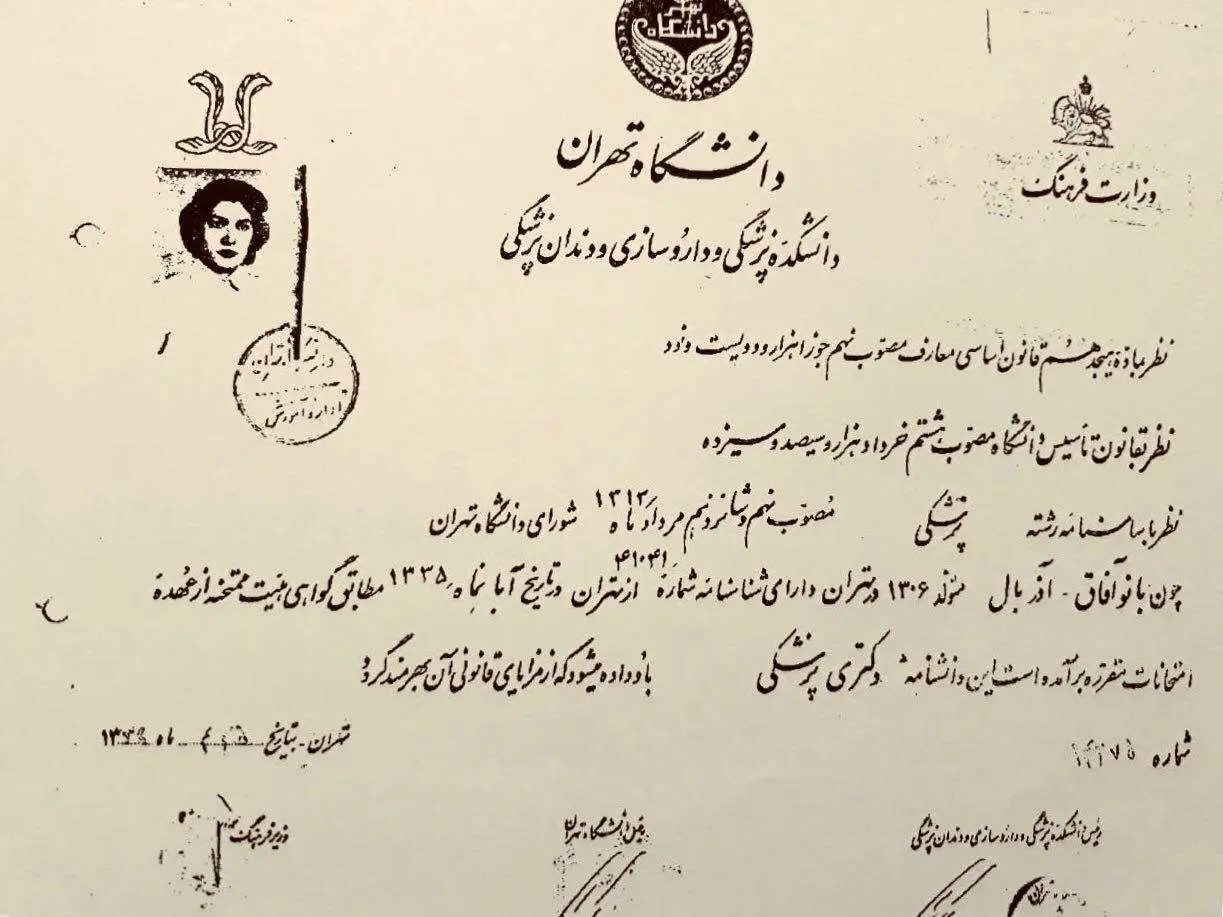 دانشگاه تهران
وزارت فرهنگ
دانشگاه تهران
دانشکدهٔ پزشکی و داروسازی و دندان پزشکی
نظر بمادهٔ هیجدهم قانون اساسی معارف مصوب نهم جوزا هزار و دویست و نود
نظر بقانون تأسیس دانشگاه مصوب هشتم خرداد هزار و سیصد و سیزده
نظر باساسنامه رشته پزشکی مصوب نهم و شانزدهم مرداد ماه ۱۳۱۳ شورای دانشگاه تهران
چون بانو آفاق - آذر بال متولد ۱۳۰۶ در تهران دارای شناسنامه شمارهٔ ۴۱۰۴۱ از تهران در تاریخ آبانماه ۱۳۳۵ مطابق گواهی هیئت ممتحنه از عهدهٔ
امتحانات مقرره برآمده است این دانشنامهٔ دکتری پزشکی باو داده میشود که از مزایای قانونی آن بهره مند گردد
شماره
تهران - بتاریخ ماه
رئیس دانشکدهٔ پزشکی و داروسازی و دندان پزشکی
رئیس دانشگاه تهران
وزیر فرهنگ
اداره آموزش